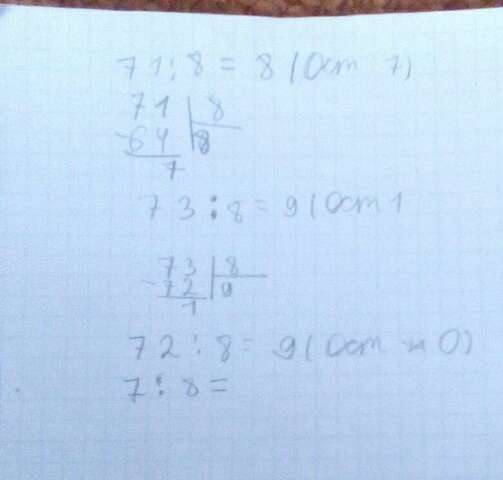 71:8=8(Ост 7)
71 8
-64 8
7
73:8=9(Ост 1
73 8
-72 9
1
72:8=9(Ост 0)
7:8=